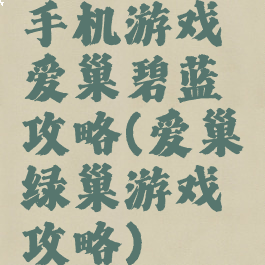 手机游戏
爱巢碧蓝
攻略(爱巢
绿巢游戏
攻略)